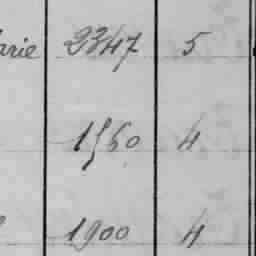 arie 2347 5
1560 4
1900 4